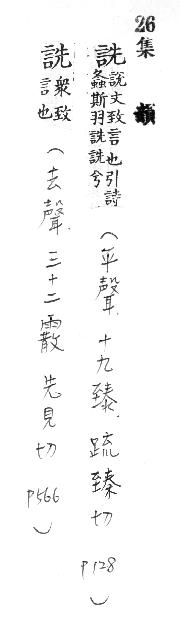 26
集
詵 說文致言也引詩
螽斯羽詵詵兮
(平聲 十九臻 疏臻切 P128)
詵 衆致
言也
(去聲 三十二霰 先見切 P566)